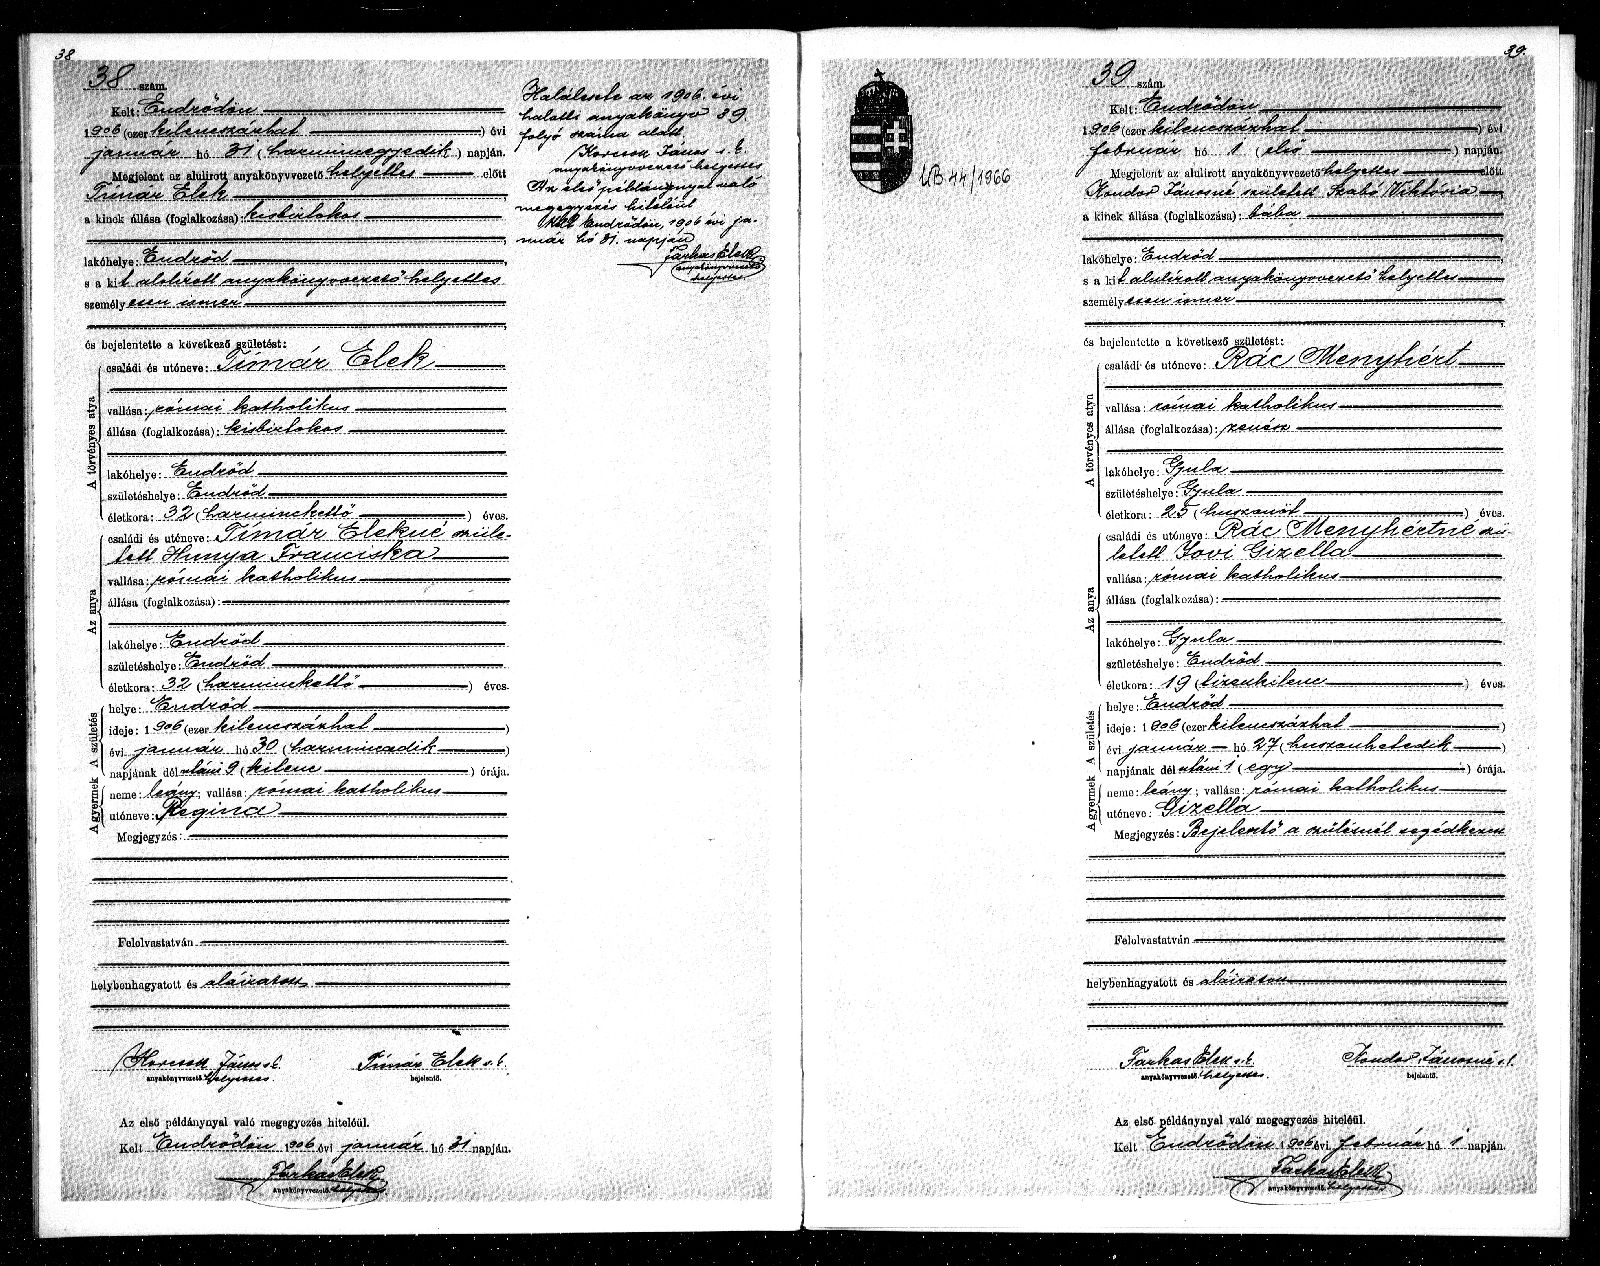 38
38 szám.
Kelt: Endrődön
1906 (ezer kilencszázhat) évi
január hó 31 (harminczegyedik) napján.
Megjelent az alulirott anyakönyvvezető helyettes előtt
Tímár Elek
a kinek állása (foglalkozása): kisbirtokos
lakóhelye: Endrőd
s a kit alulírott anyakönyvvezető helyettes
személyesen ismer
és bejelentette a következő születést:
A törvényes atya
családi és utóneve: Tímár Elek
vallása: római katholikus
állása (foglalkozása): kisbirtokos
lakóhelye: Endrőd
születéshelye: Endrőd
életkora: 32 (harminckettő) éves.
Az anya
családi és utóneve: Tímár Elekné szüle-
tett Hunya Franciska
vallása: római katholikus
állása (foglalkozása):
lakóhelye: Endrőd
születéshelye: Endrőd
életkora: 32 (harminckettő) éves.
A születés
helye: Endrőd
ideje: 1906 (ezer kilencszázhat
évi január hó 30 (harmincadik)
napjának délutáni 9 (kilenc) órája.
A gyermek
neme: leány; vallása: római katholikus
utóneve: Regina
Megjegyzés:
Felolvastatván
helybenhagyatott és aláíratott
Korcsok János s.k. Tímár Elek s.k.
anyakönyvvezető helyettes. bejelentő.
Az első példánynyal való megegyezés hiteléül.
Kelt Endrődön 1906 évi január hó 31 napján.
Farkas Elek
anyakönyvvezető helyettes
Halálesete az 1906. évi
halotti anyakönyv 39.
folyó száma alatt.
Korcsok János s.k.
anyakönyvvezető helyettes
Az első példánnyal való
megegyezés hiteléül
Kelt Endrődön, 1906 évi ja-
nuár hó 31. napján
Farkas Elek
anyakönyvvezető
helyettes
39.
UB.44/1966
39 szám.
Kelt: Endrődön
1906 (ezer kilencszázhat) évi
február hó 1 (első) napján.
Megjelent az alulirott anyakönyvvezető helyettes előtt
Kondor Jánosné született Szabó Viktória
a kinek állása (foglalkozása): bába
lakóhelye: Endrőd
s a kit alulírott anyakönyvvezető helyettes
személyesen ismer
és bejelentette a következő születést:
A törvényes atya
családi és utóneve: Rác Menyhért
vallása: római katholikus
állása (foglalkozása): zenész
lakóhelye: Gyula
születéshelye: Gyula
életkora: 25 (huszonöt) éves.
Az anya
családi és utóneve: Rác Menyhértné szü-
letett Jovi Gizella
vallása: római katholikus
állása (foglalkozása):
lakóhelye: Gyula
születéshelye: Endrőd
életkora: 19 (tizenkilenc) éves.
A születés
helye: Endrőd
ideje: 1906 (ezer kilencszázhat
évi január hó 27 (huszonhetedik)
napjának délutáni 1 (egy) órája.
A gyermek
neme: leány; vallása: római katholikus
utóneve: Gizella
Megjegyzés: Bejelentő a szülésnél segédkezett
Felolvastatván
helybenhagyatott és aláíratott
Farkas Elek s.k. Kondor Jánosné s.k.
anyakönyvvezető helyettes. bejelentő.
Az első példánynyal való megegyezés hiteléül.
Kelt Endrődön 1906 évi február hó 1 napján.
Farkas Elek
anyakönyvvezető helyettes